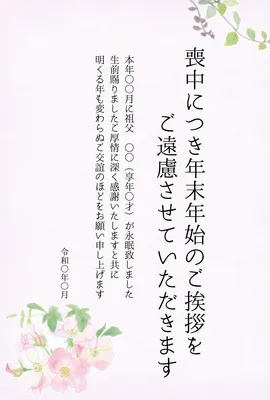 喪中につき年末年始のご挨拶を
ご遠慮させていただきます
本年〇〇月に祖父　〇〇（享年〇才）が永眠致しました
生前賜りましたご厚情に深く感謝いたしますと共に
明くる年も変わらぬご交誼のほどをお願い申し上げます
令和〇年〇月